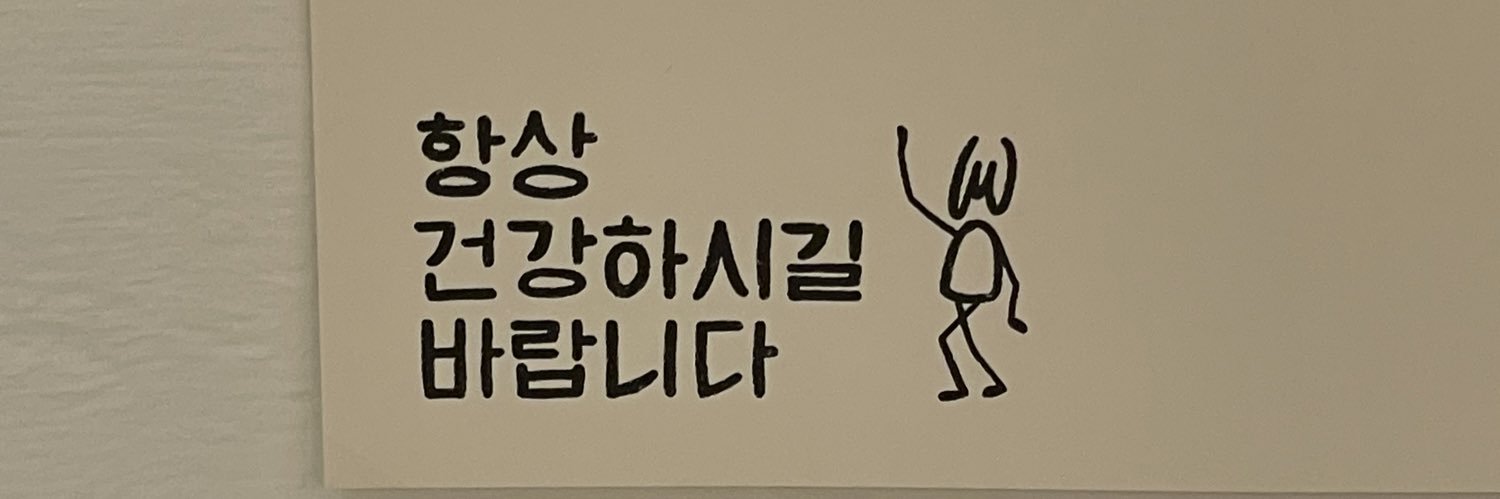 항상
건강하시길
바랍니다